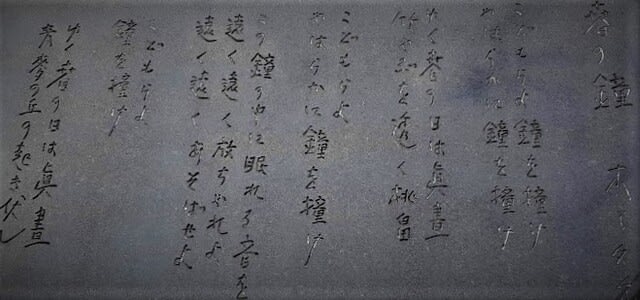 春の鐘
こどもらよ 鐘を撞け
やはらかに 鐘を撞け
ゆく春の日は眞晝
竹やぶを透く桃畠
こどもらよ
やはらかに鐘を撞け
この鐘の中に眠れる音を
遠く遠く放ちやれよ
遠く遠くあそばせよ
こどもらよ
鐘を撞け
ゆく春の日は眞晝
青麥の丘の起き伏し